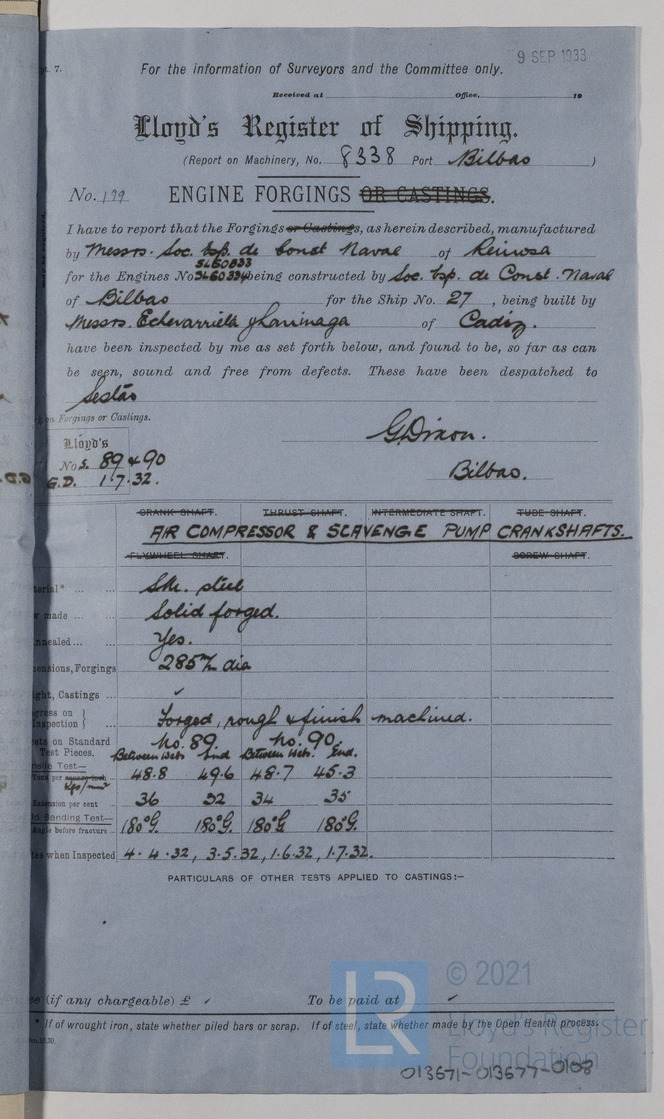 pt. 7.
9 SEP 1933
For the information of Surveyors and the Committee only.
Received at Office, 19
Lloyd's Register of Shipping.
(Report on Machinery, No. 8338 Port Bilbao )
No. 199 ENGINE FORGINGS OR CASTINGS.
I have to report that the Forgings or Castings, as herein described, manufactured
by Messrs. Soc. Esp. de Const Naval of Reinosa
SLG0833
for the Engines No SLG0834 being constructed by Soc. Esp. de Const. Naval
of Bilbao for the Ship No. 27 , being built by
Messrs. Echevarrieta y Larrinaga of Cadiz.
have been inspected by me as set forth below, and found to be, so far as can
be seen, sound and free from defects. These have been despatched to
Sestao
on Forgings or Castings.
Lloyd's
Nos. 89 & 90
G.D. 1.7.32.
G. Dixon.
Bilbao.
CRANK SHAFT. THRUST SHAFT. INTERMEDIATE SHAFT. TUBE SHAFT.
AIR COMPRESSOR & SCAVENGE PUMP CRANKSHAFTS.
FLYWHEEL SHAFT. SCREW SHAFT.
terial* ... ... S.M. steel
w made ... Solid forged.
nnealed ... ... Yes.
ensions, Forgings 285 m/m dia
ght, Castings ... ✓
gress on Inspection } Forged, rough & finish machined.
sts on Standard Test Pieces. No. 89. No. 90.
Between Webs End Between Webs. End.
sile Test—
Tons per square inch 48.8 49.6 48.7 45.3
Kgs/mm²
Extension per cent 36 32 34 35
ld Bending Test—
Angle before fracture ... 180°G. 180°G. 180°G 180°G.
tes when Inspected 4.4.32, 3.5.32, 1.6.32, 1.7.32.
PARTICULARS OF OTHER TESTS APPLIED TO CASTINGS:—
ee (if any chargeable) £ ✓ To be paid at ✓
* If of wrought iron, state whether piled bars or scrap. If of steel, state whether made by the Open Hearth process.
LR
© 2021
Lloyd's Register
Foundation
013671-013677-0108